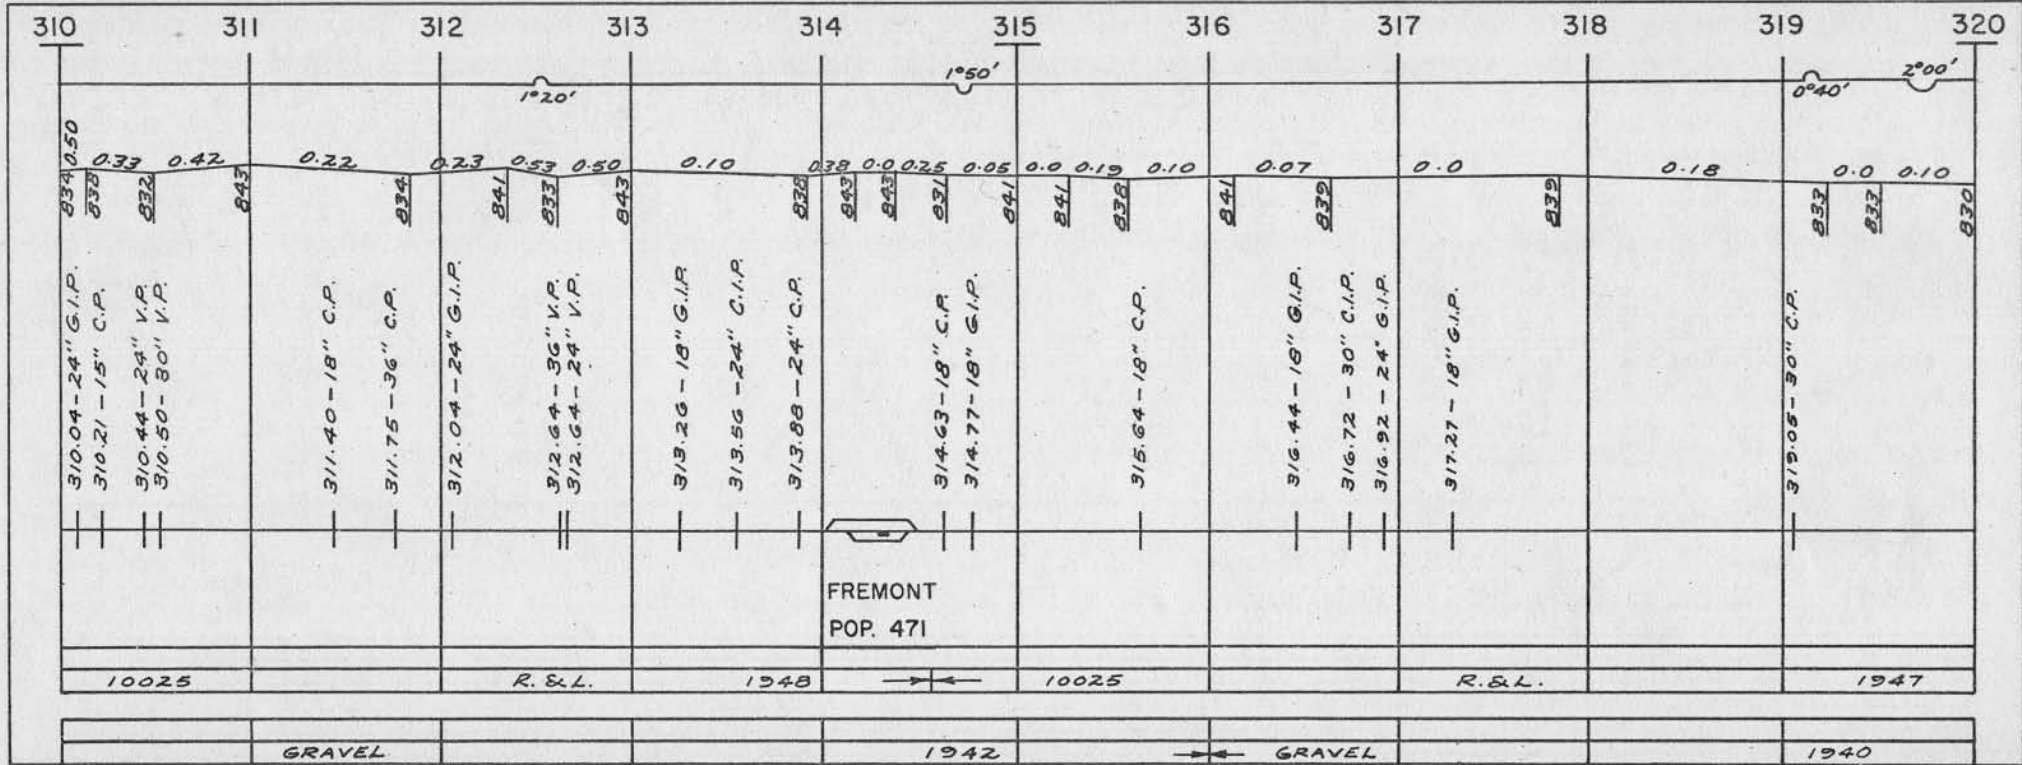 310 311 312 313 314 315 316 317 318 319 320
1°20' 1°50' 0°40' 2°00'
0.50 0.33 0.42 0.22 0.23 0.53 0.50 0.10 0.38 0.0 0.25 0.05 0.0 0.19 0.10 0.07 0.0 0.18 0.0 0.10
834 838 832 843 834 841 833 843 838 843 843 831 841 841 838 841 839 839 833 833 830
310.04-24" G.I.P.
310.21-15" C.P.
310.44-24" V.P.
310.50-30" V.P.
311.40-18" C.P.
311.75-36" C.P.
312.04-24" G.I.P.
312.64-36" V.P.
312.64-24" V.P.
313.26-18" G.I.P.
313.56-24" C.I.P.
313.88-24" C.P.
314.63-18" C.P.
314.77-18" G.I.P.
315.64-18" C.P.
316.44-18" G.I.P.
316.72-30" C.I.P.
316.92-24" G.I.P.
317.27-18" G.I.P.
319.05-30" C.P.
FREMONT
POP. 471
10025 R.&L. 1948 10025 R.&L. 1947
GRAVEL 1942 GRAVEL 1940